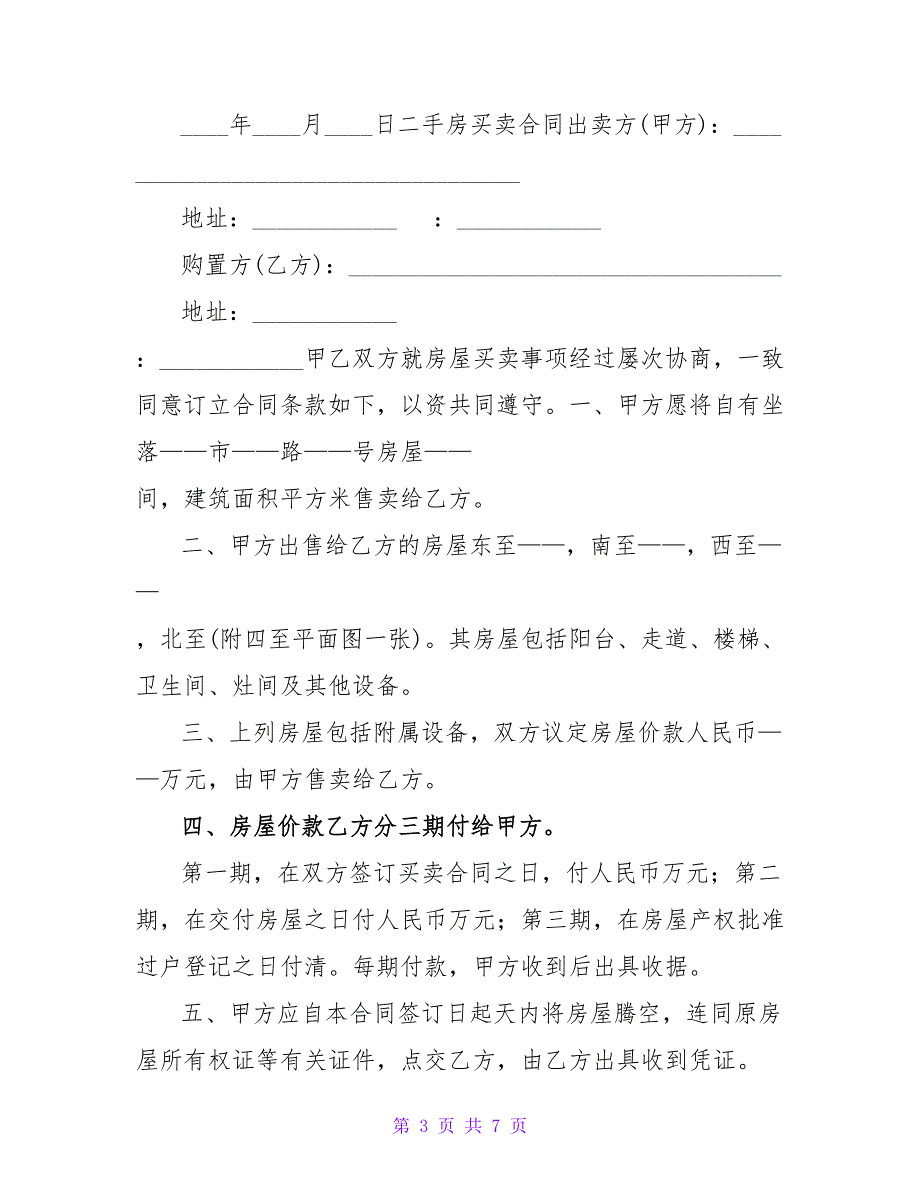 ____年____月____日二手房买卖合同出卖方(甲方)：____
________________________________
地址：____________ ：____________
购置方(乙方)：____________________________________
地址：____________
：____________甲乙双方就房屋买卖事项经过屡次协商，一致
同意订立合同条款如下，以资共同遵守。一、甲方愿将自有坐
落——市——路——号房屋——
间，建筑面积平方米售卖给乙方。
二、甲方出售给乙方的房屋东至——，南至——，西至—
—
，北至(附四至平面图一张)。其房屋包括阳台、走道、楼梯、
卫生间、灶间及其他设备。
三、上列房屋包括附属设备，双方议定房屋价款人民币—
—万元，由甲方售卖给乙方。
四、房屋价款乙方分三期付给甲方。
第一期，在双方签订买卖合同之日，付人民币万元；第二
期，在交付房屋之日付人民币万元；第三期，在房屋产权批准
过户登记之日付清。每期付款，甲方收到后出具收据。
五、甲方应自本合同签订日起天内将房屋腾空，连同原房
屋所有权证等有关证件，点交乙方，由乙方出具收到凭证。
第 3 页 共 7 页